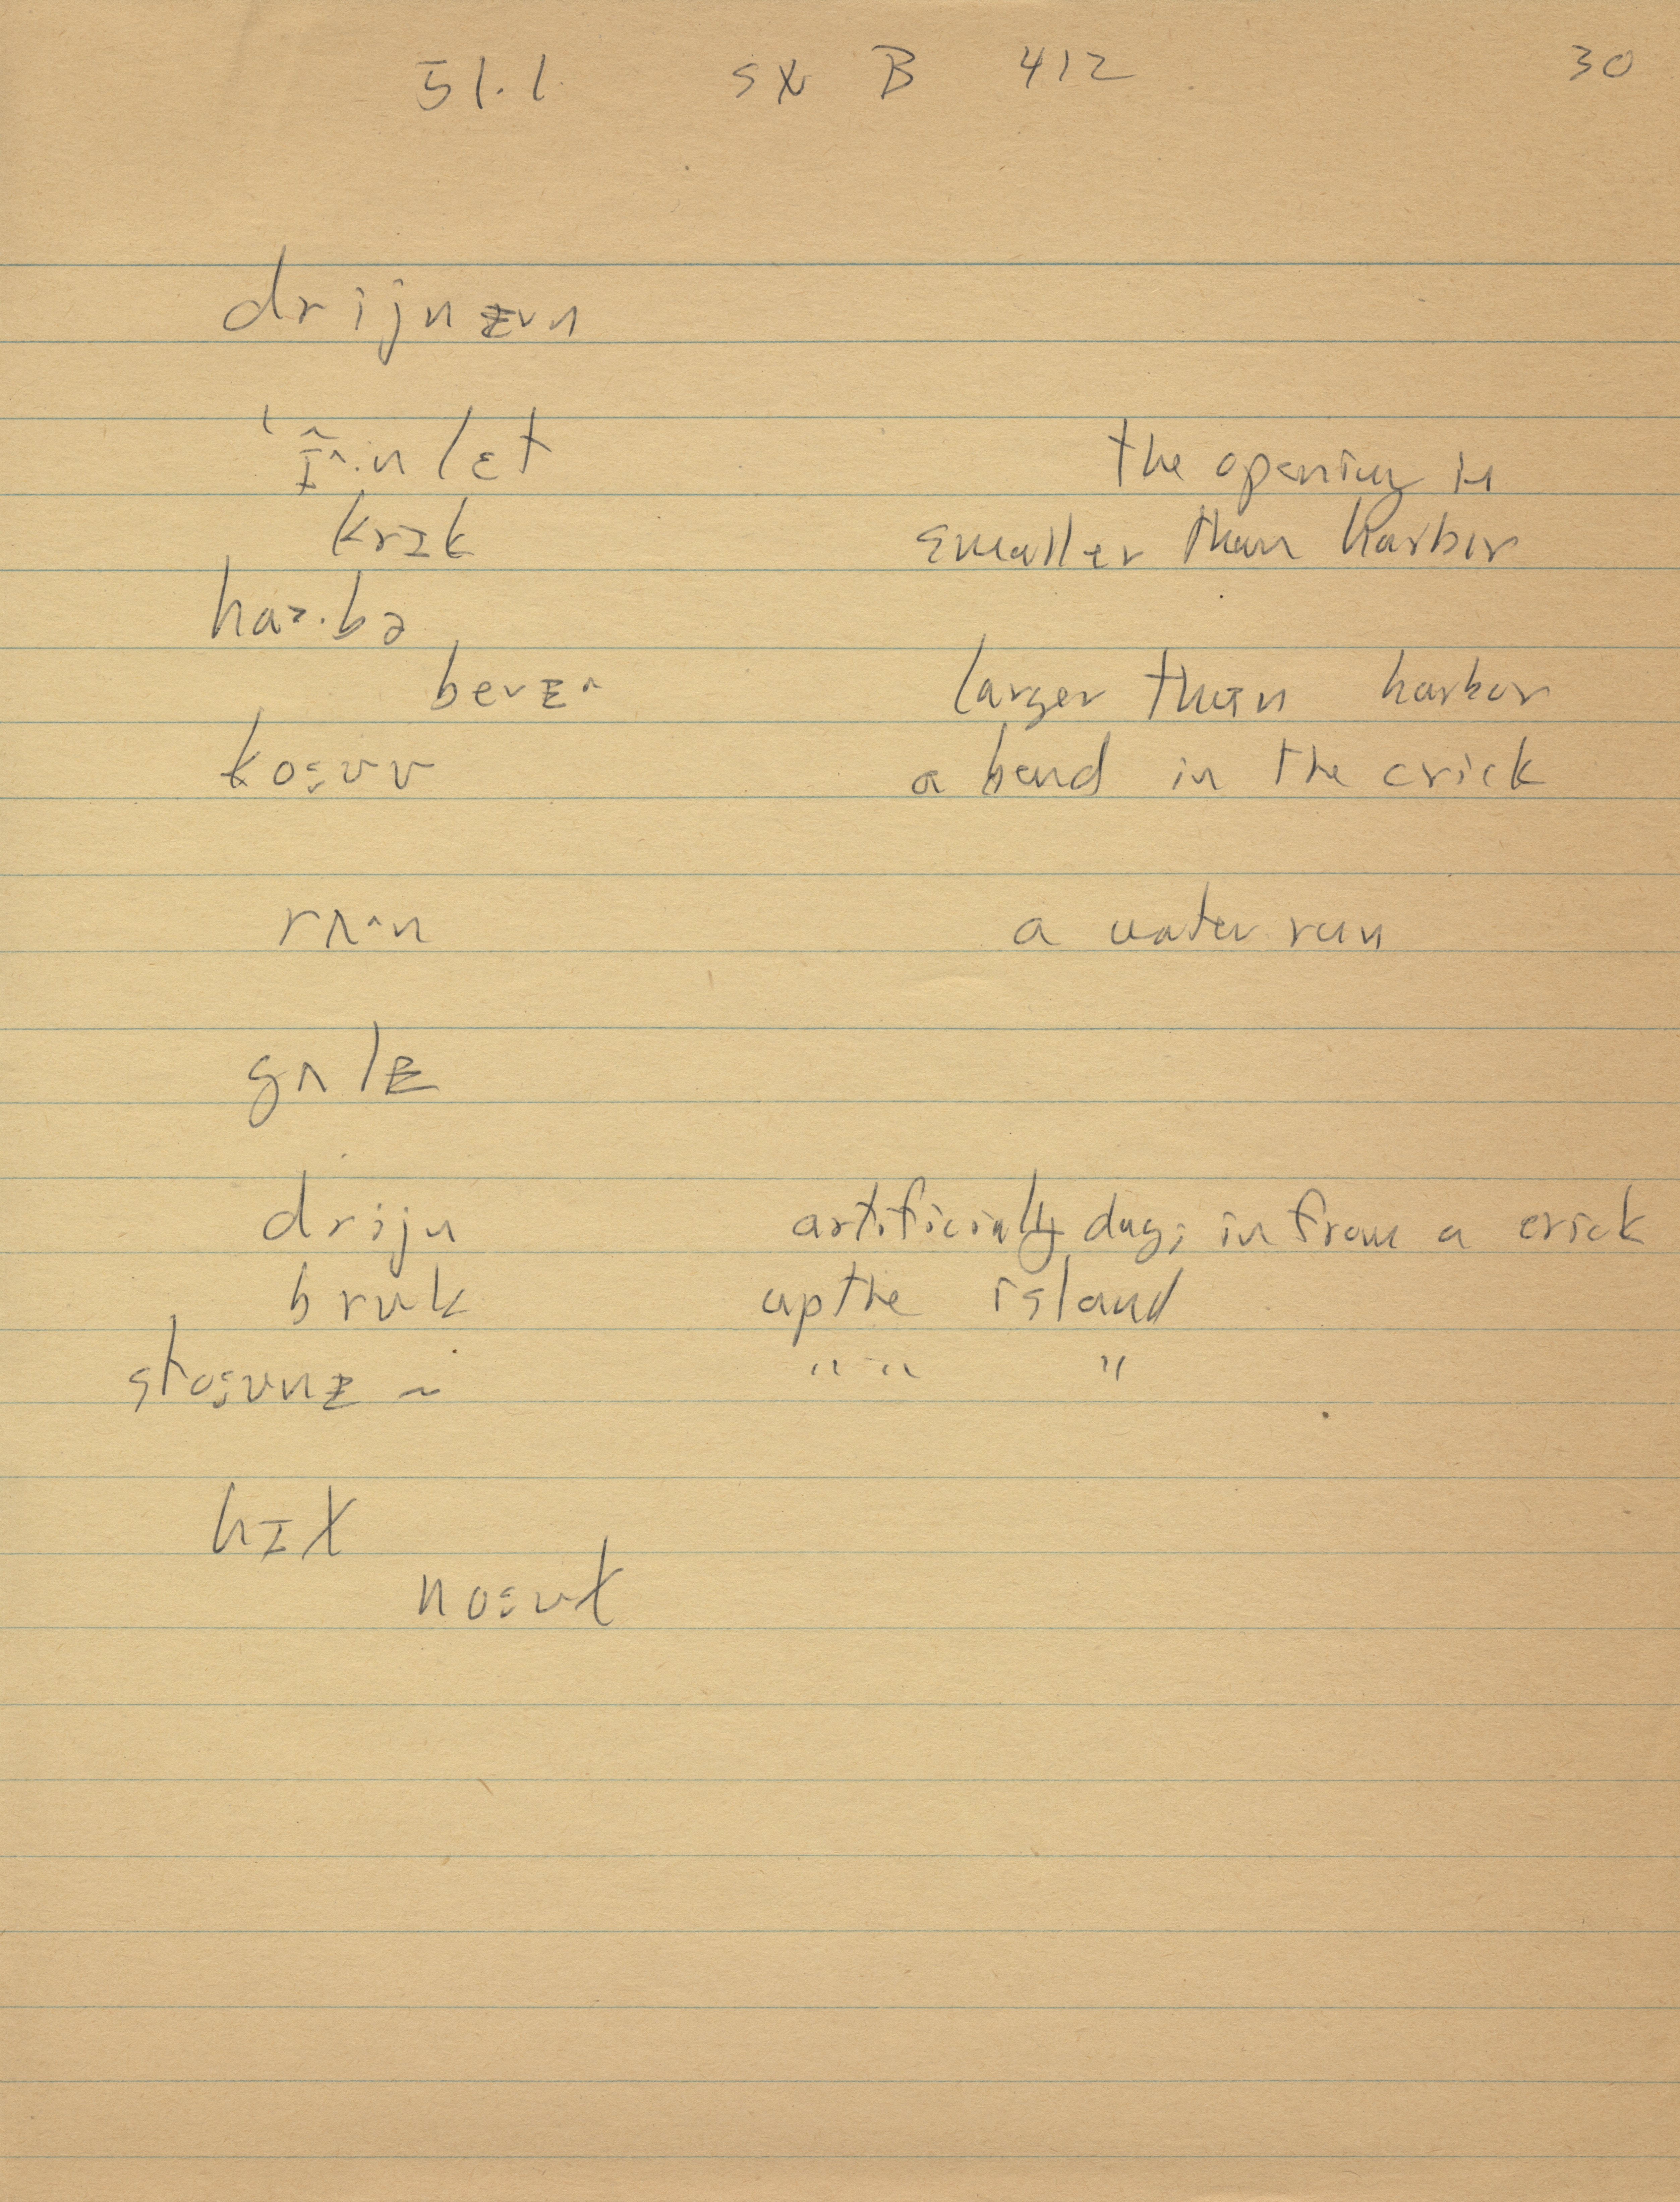 51.1 SX B 412 30
drijnɪᵻn
ˈɪ̂^.nlɛt the opening is
krɪk smaller than harbor
haɜ.bə
bevɪ^ larger than harbor
koːʊv a bend in the crick
rʌ^n a water run
gʌlɪ
drijn artificially dug; in from a crick
brʊk up the island
stoːʊnɪ ~ " " "
hɪt
noːʊt